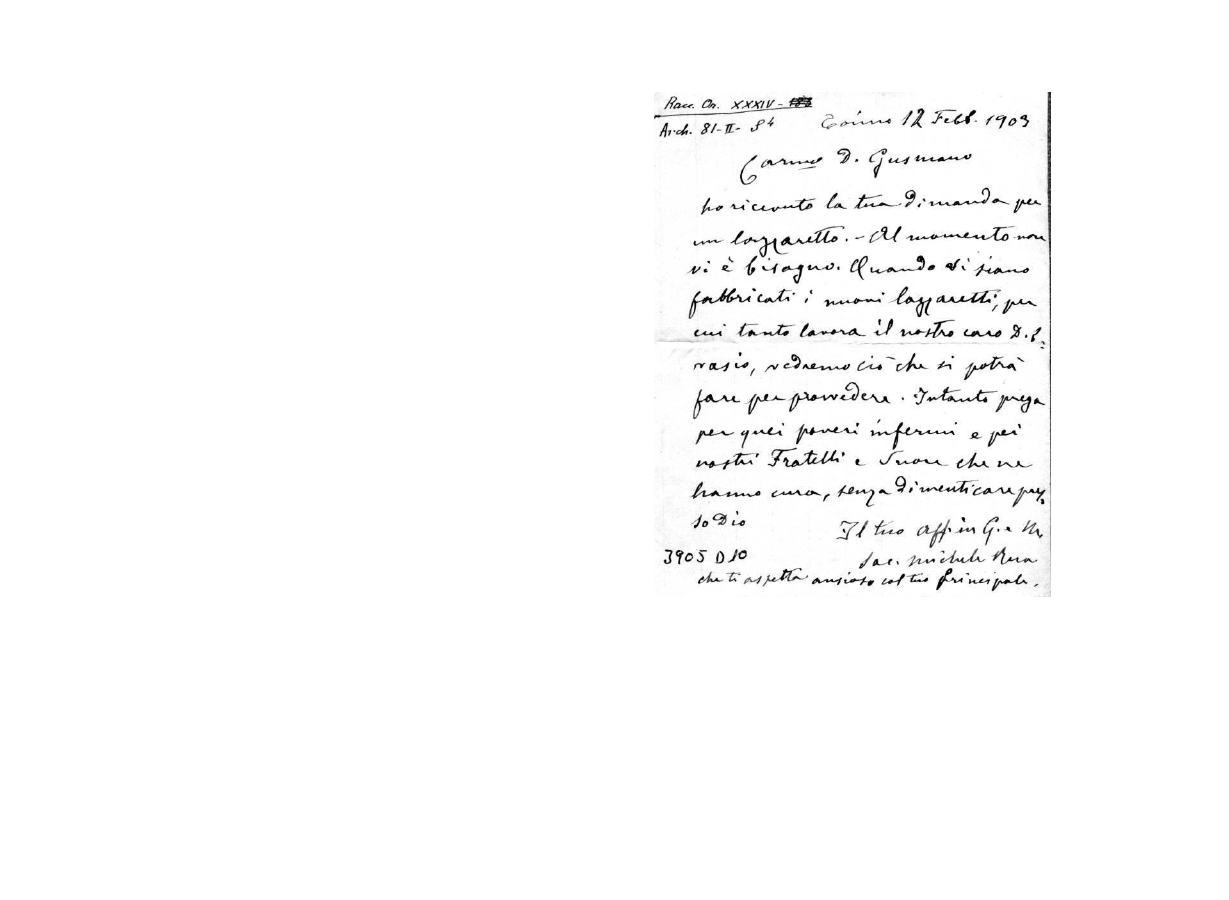 Racc. On. XXXIV -
Arch. 81-II- S4
Torino 12 Febb. 1903
Carmo D. Gusmano
ho ricevuto la tua dimanda per
un lazzaretto. - Al momento non
vi è bisogno. Quando vi siano
fabbricati i nuovi lazzaretti, per
cui tanto lavora il nostro caro D. E-
vasio, vedremo ciò che si potrà
fare per provvedere. Intanto prega
per quei poveri infermi e pei
nostri Fratelli e Suore che ne
hanno cura, senza dimenticare pres
so Dio
Il tuo aff.in G. e M.
3905 D10
Sac. Michele Rua
che ti aspetta ansioso col tuo principale.